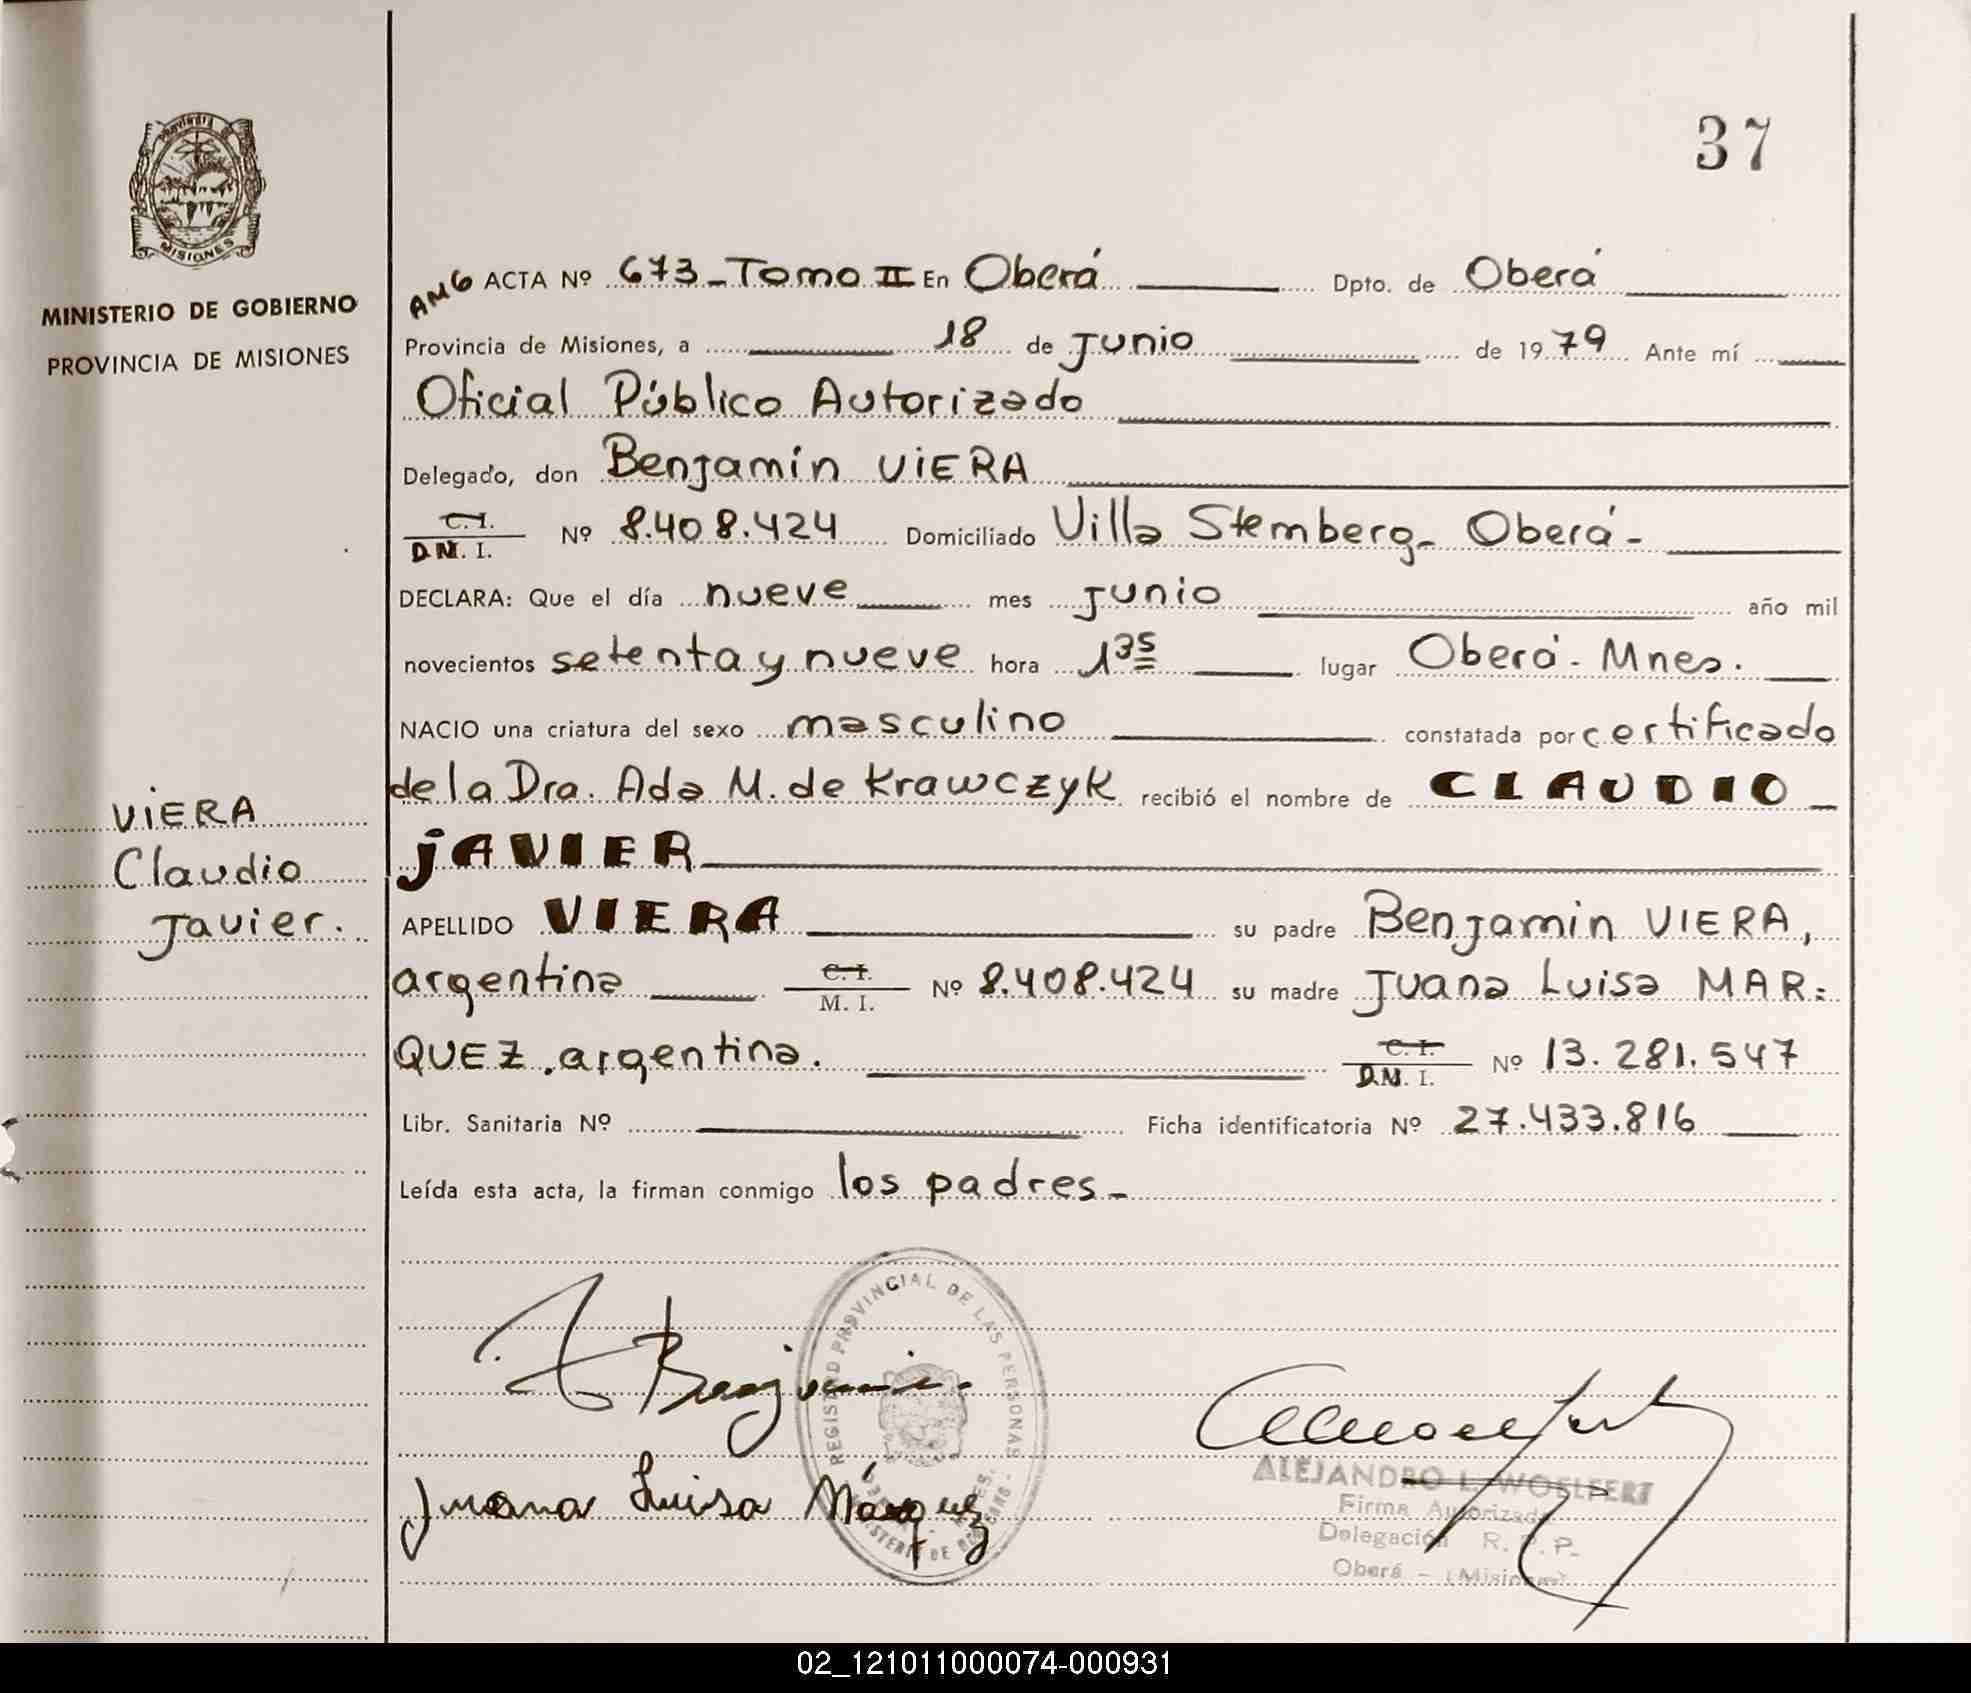 37
PROVINCIA DE
MISIONES
MINISTERIO DE GOBIERNO
PROVINCIA DE MISIONES
VIERA
Claudio
Javier.
AMG ACTA Nº 673-Tomo II En Oberá Dpto. de Oberá
Provincia de Misiones, a 18 de junio de 1979 Ante mí
Oficial Público Autorizado
Delegado, don Benjamín VIERA
C.I.
D.N.I. Nº 8.408.424 Domiciliado Villa Stemberg- Oberá-
DECLARA: Que el día nueve mes junio año mil
novecientos setenta y nueve hora 1 35 lugar Oberá- Mnes.
NACIO una criatura del sexo masculino constatada por certificado
de la Dra. Ada M. de Krawczyk recibió el nombre de CLAUDIO
JAVIER
APELLIDO VIERA su padre Benjamin VIERA,
argentina C.I. M. I. Nº 8.408.424 su madre Juana Luisa MAR=
QUEZ.argentina. C.I. D.N.I. Nº 13.281.547
Libr. Sanitaria Nº Ficha identificatoria Nº 27.433.816
Leída esta acta, la firman conmigo los padres-
REGISTRO PROVINCIAL DE LAS PERSONAS
Benjamin
Juana Luisa Márquez
ALEJANDRO L. WOELFERT
Firma Autorizada
Delegación R. P. P.
Oberá - (Misiones)
02_121011000074-000931